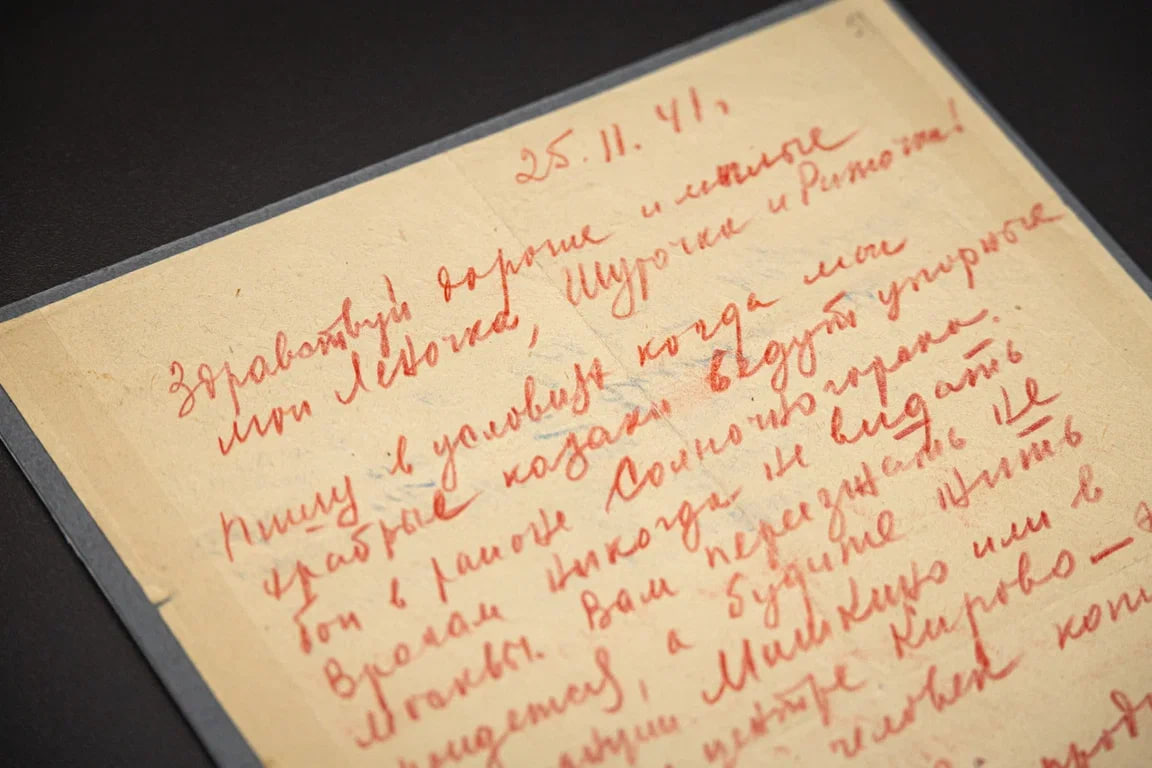 25.11.41г.
Здравствуй дорогие и милые
мои Леночка, Шурочка и Риточка!
Пишу в условиях когда мои
храбрые казаки ведут упорные
бои в районе Солнечногорска.
Врагам никогда не видать
Москвы. Вам переезжать не
придется, а будите жить
Мишкино или в
центре Кирово-
человек